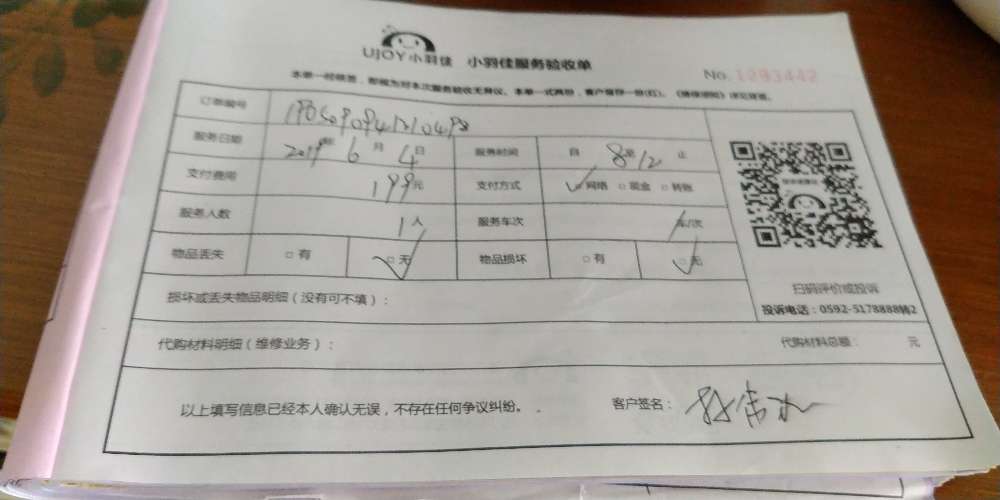 UJOY小羽佳 小羽佳服务验收单
No. 1283442
本单一经核签,即视为对本次服务验收无异议。本单一式两份,客户留存一份(红)。
订单编号
服务日期 2019年 6 月 4 日 服务时间 自 8至12 止
支付费用 199元 支付方式 ☑网络 □现金 □转账
服务人数 1人 服务车次 车/次
物品丢失 □有 ☑无 物品损坏 □有 ☑无
扫码评价或投诉
投诉电话:0592-5178888转2
损坏或丢失物品明细(没有可不填):
代购材料明细(维修业务): 代购材料总额: 元
以上填写信息已经本人确认无误,不存在任何争议纠纷。 客户签名: